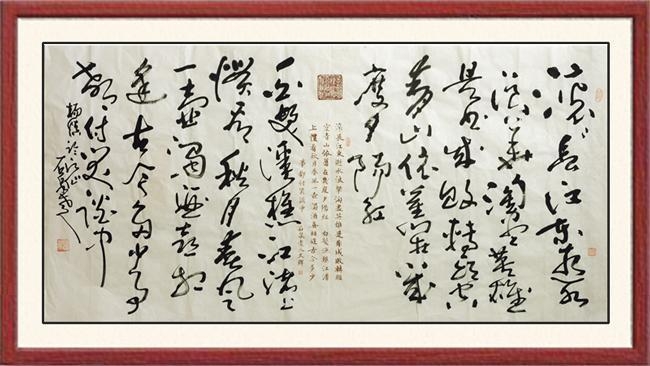 滚滚长江东逝水
浪花淘尽英雄
是非成败转头空
青山依旧在几
度夕阳红
滚滚長江東逝水浪花淘盡英雄是非成敗轉頭
空青山依舊在幾度夕陽紅 白髮漁樵江渚
上慣看秋月春風一壺濁酒喜相逢古今多少
事都付笑談中
白发渔樵江渚上
惯看秋月春风
一壶浊酒喜相
逢古今多少事
都付笑谈中
杨慎